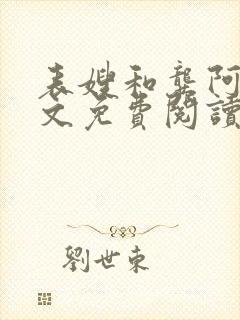 表嫂和龔阿
文免費閱讀
劉世東